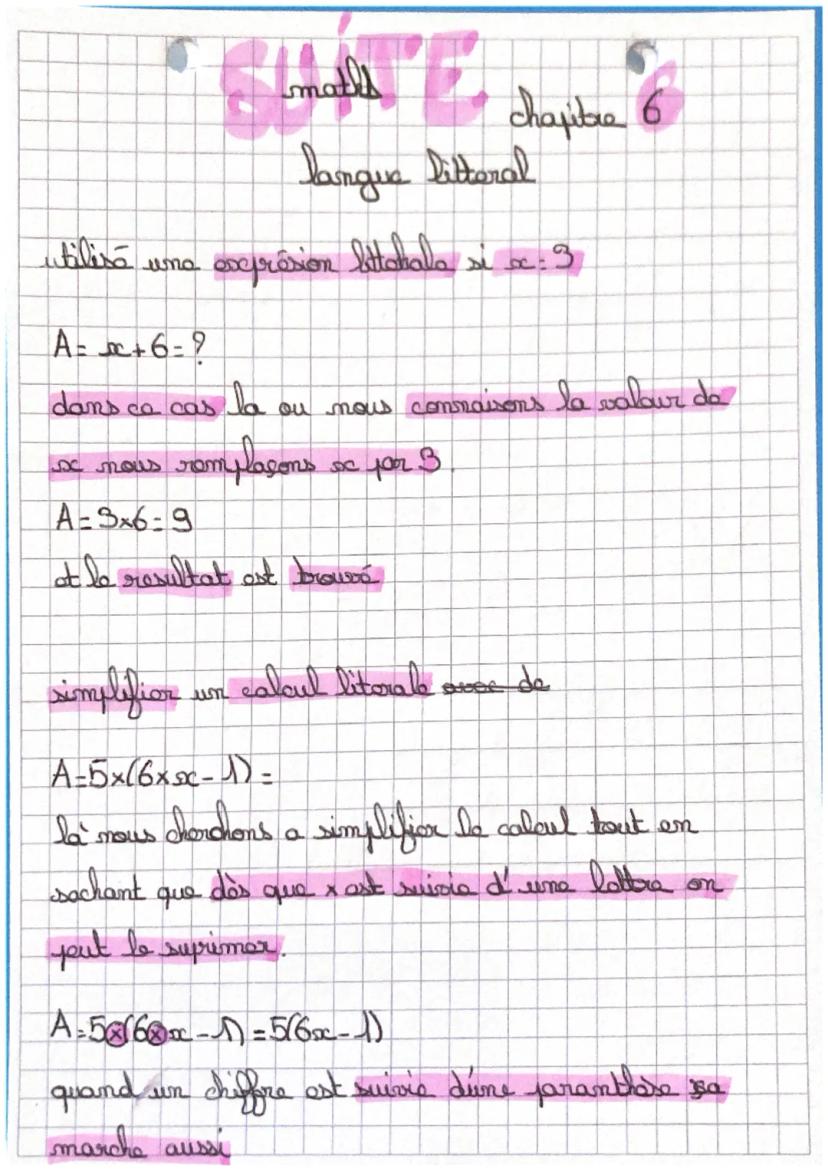 SUITE
maths
chapitre 6
langue littoral
utilisé une exprésion littohale si x=3
A= x+6=?
dans ce cas la ou nous connaisons la valeur de
x nous remplaçons x par 3.
A=3x6=9
et le resultat est trouvé
simplifier un calcul litorale avec de
A=5x(6xx-1)=
là nous cherchons a simplifier le calcul tout en
sachant que dès que x est suivie d'une lettre on
peut le suprimer.
A=5x(6xx-1)=5(6x-1)
quand un chiffre est suivie d'une paranthèse sa
marche aussi